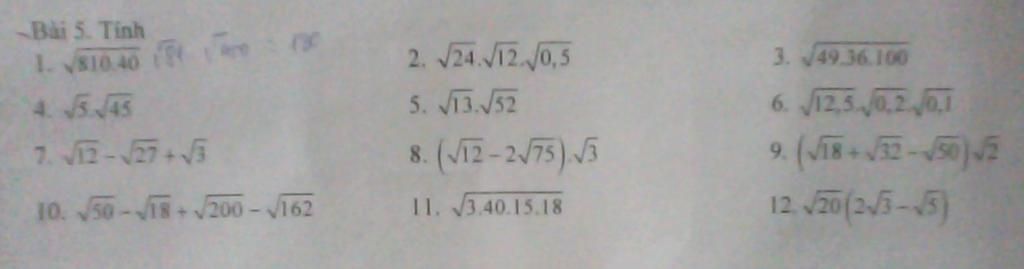 Bài 5. Tính
1. √810.40 √81 √400 = 180 2. √24.√12.√0,5 3. √49.36.100
4. √5.√45 5. √13.√52 6. √12,5.√0,2.√0,1
7. √12 − √27 + √3 8. (√12 − 2√75).√3 9. (√18 + √32 − √50)√2
10. √50 − √18 + √200 − √162 11. √3.40.15.18 12. √20(2√3 − √5)